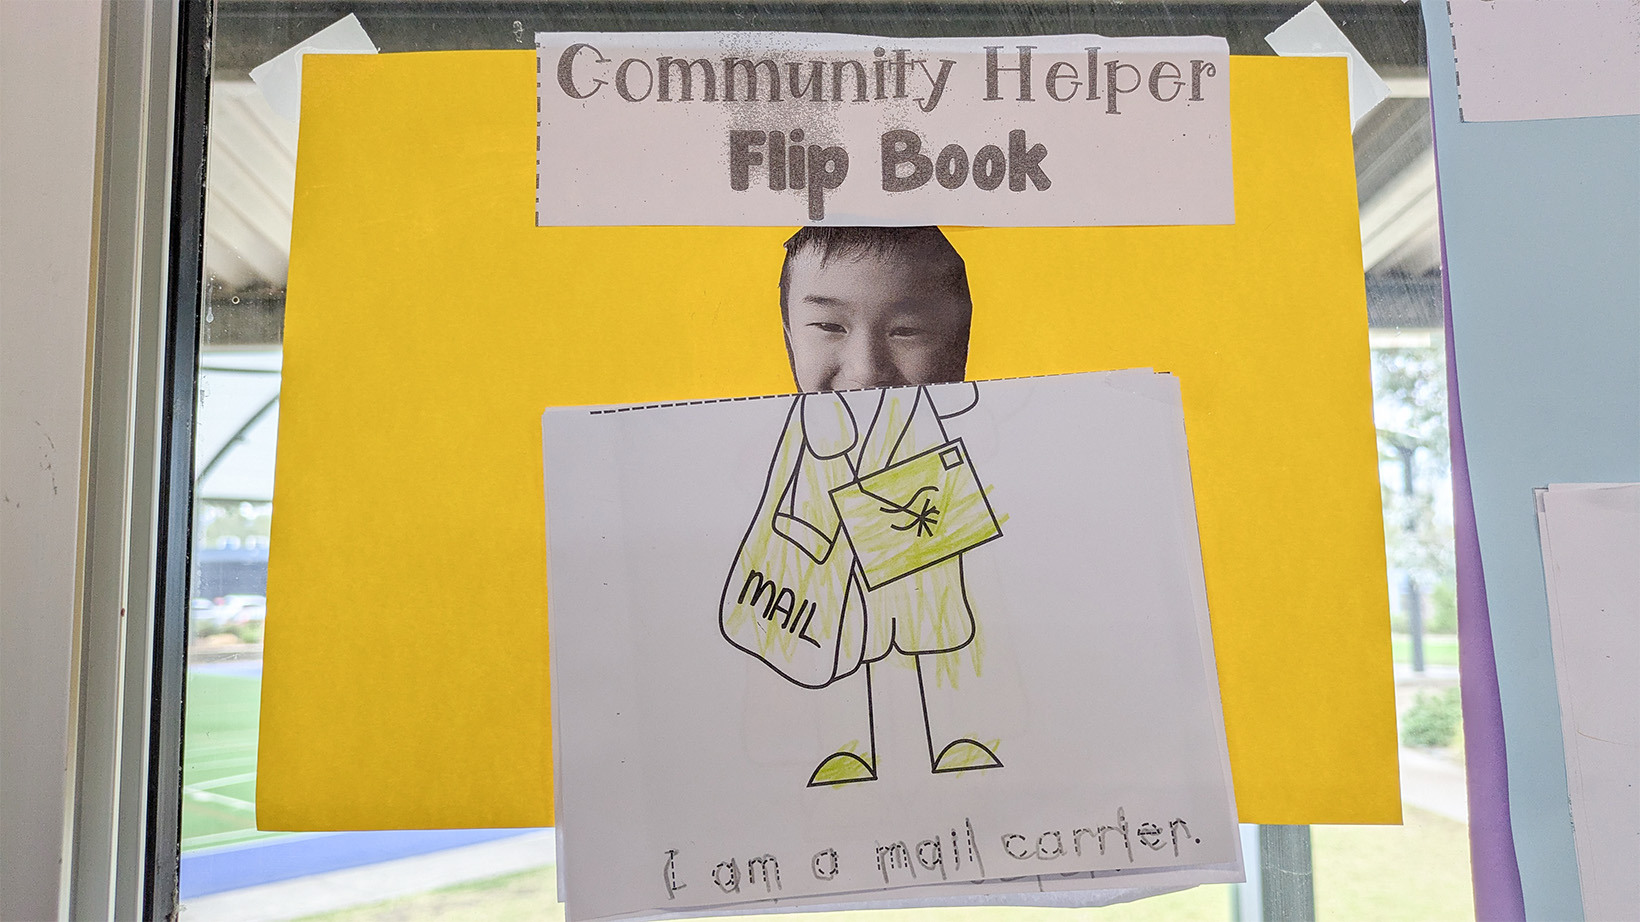 Community Helper
Flip Book
MAIL
I am a mail carrier.